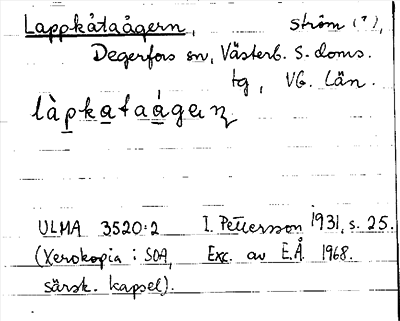 Lappkåtaågern, ström (?),
Degerfors sn, Västerb. s. doms.
tg, VB. Län.
làpkataágeṇ
ULMA 3520:2 I. Pettersson 1931, s. 25.
(Xerokopia i SOA, Exc. av E.Å. 1968.
särsk. kapsel).